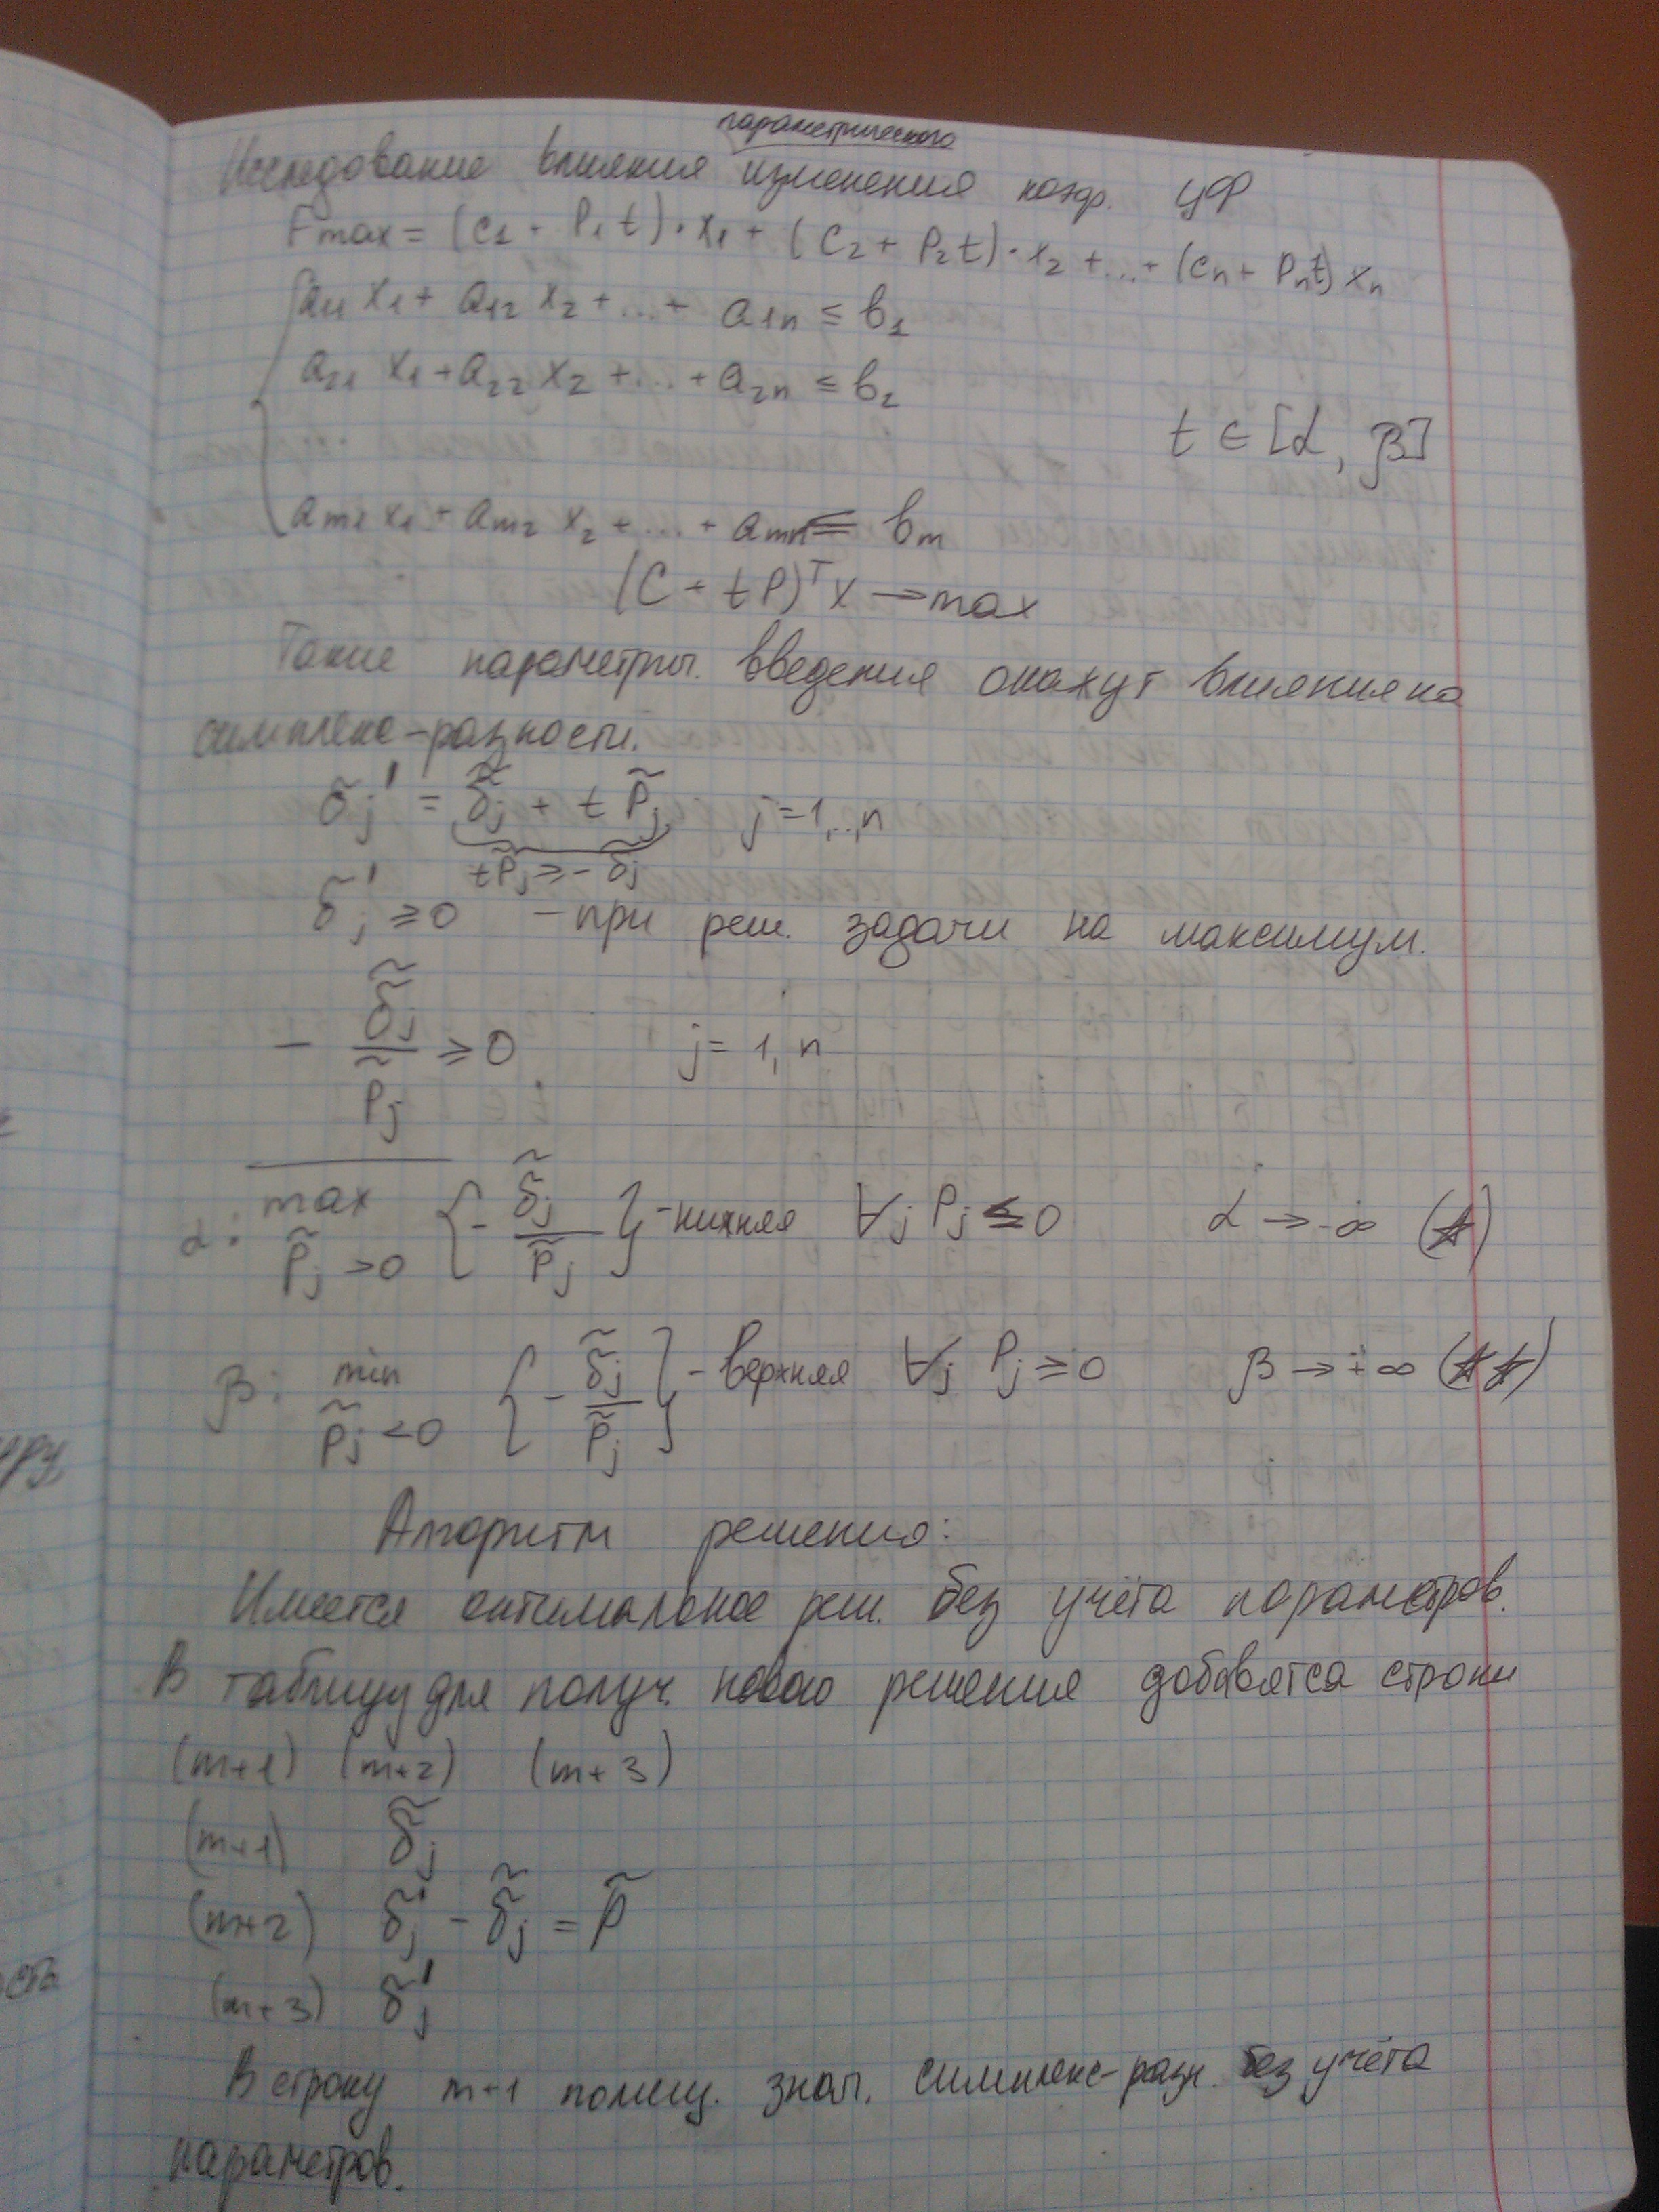 параметрического
Исследование влияния изменения коэф. ЦФ
Fmax = (c₁ + P₁t)·x₁ + (c₂ + P₂t)·x₂ + ... + (cₙ + Pₙt)xₙ
a₁₁x₁ + a₁₂x₂ + ... + a₁ₙ ≤ b₁
a₂₁x₁ + a₂₂x₂ + ... + a₂ₙ ≤ b₂
t ∈ [α, β]
aₘ₁x₁ + aₘ₂x₂ + ... + aₘₙ ≤ bₘ
(C + tP)ᵀx → max
Такие параметры. введения окажут влияния на
симплекс-разности.
δ̃ⱼ' = δ̃ⱼ + tP̃ⱼ j=1,..,n
tP̃ⱼ ≥ -δ̃ⱼ
δ̃ⱼ' ≥ 0 - при реш. задачи на максимум.
- δ̃ⱼ/P̃ⱼ ≥ 0 j = 1, n
α: max P̃ⱼ > 0 {- δ̃ⱼ/P̃ⱼ} - нижняя ∀ⱼ Pⱼ ≤ 0 α → -∞ (☆)
β: min P̃ⱼ < 0 {- δ̃ⱼ/P̃ⱼ} - верхняя ∀ⱼ Pⱼ ≥ 0 β → +∞ (☆☆)
Алгоритм решения:
Имеется оптимальное реш. без учёта параметров.
В таблицу для получ. нового решения добавятся строки
(m+1) (m+2) (m+3)
(m+1) δ̃ⱼ
(m+2) δⱼ' - δ̃ⱼ = P̃
(m+3) δⱼ'
В строку m+1 помещ. знач. симплекс-разн. без учёта
параметров.